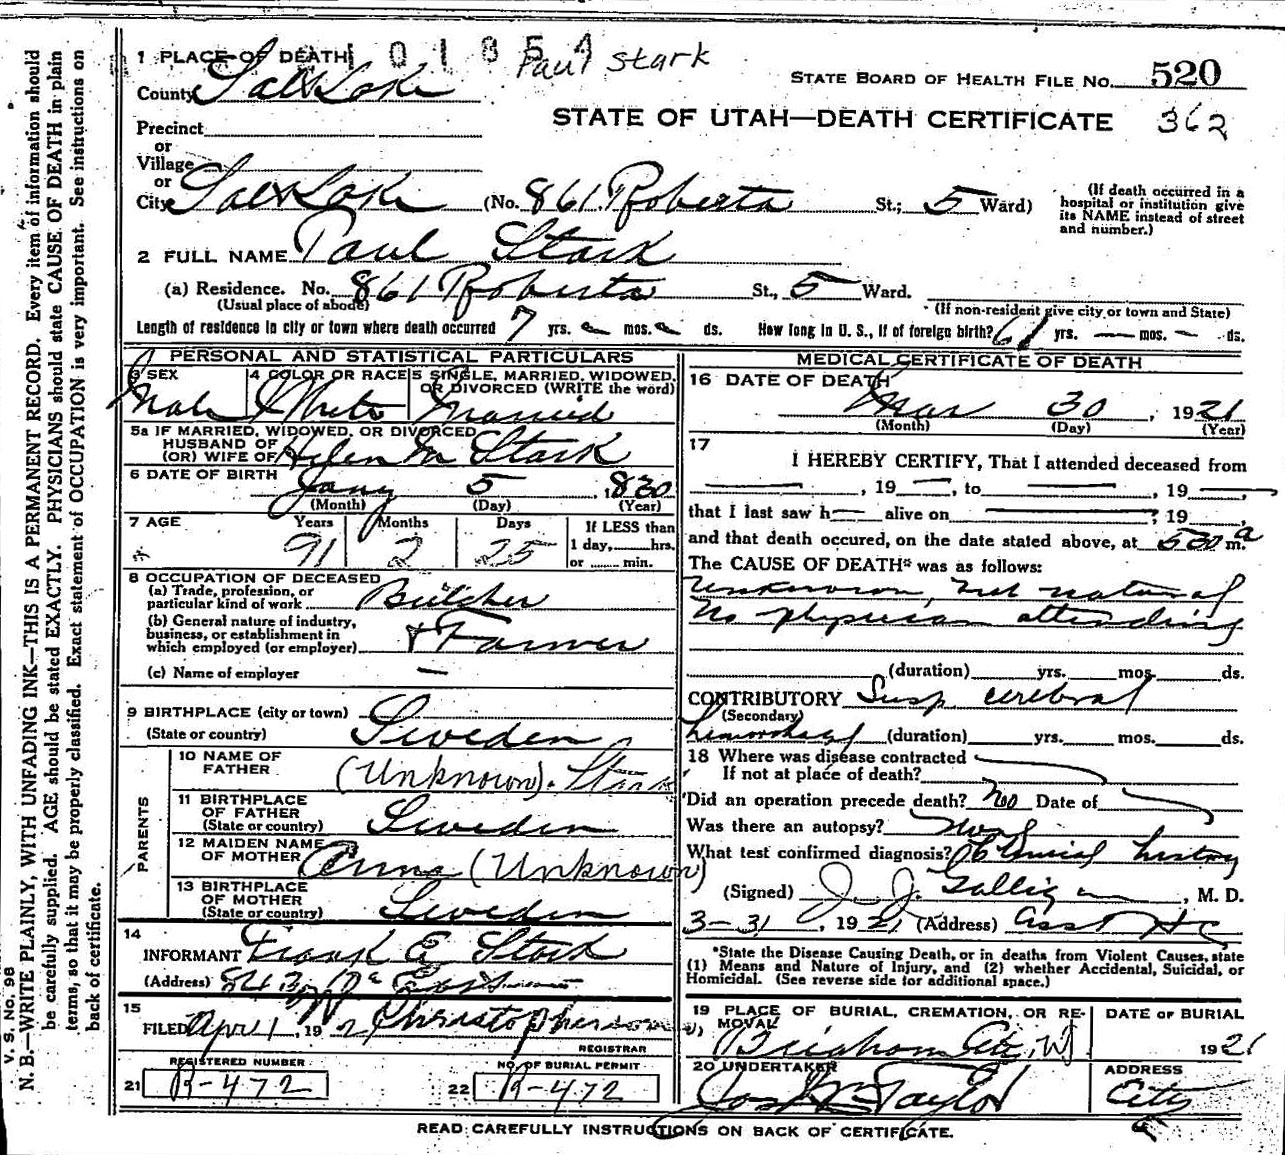 101854
Paul Stark
1 PLACE OF DEATH
County Salt Lake
STATE BOARD OF HEALTH FILE No. 520
STATE OF UTAH—DEATH CERTIFICATE 362
Precinct
or
Village
or
City Salt Lake (No. 861 Roberta St.; 5 Ward)
(If death occurred in a hospital or institution give its NAME instead of street and number.)
2 FULL NAME Paul Stark
(a) Residence. No. 861 Roberta St., 5 Ward.
(Usual place of abode) (If non-resident give city or town and State)
Length of residence in city or town where death occurred 7 yrs. — mos. — ds. How long in U. S., if of foreign birth? 61 yrs. — mos. — ds.
PERSONAL AND STATISTICAL PARTICULARS
3 SEX Male
4 COLOR OR RACE White
5 SINGLE, MARRIED, WIDOWED, OR DIVORCED (WRITE the word) Married
5a IF MARRIED, WIDOWED, OR DIVORCED
HUSBAND OF
(OR) WIFE OF Helen M Stark
6 DATE OF BIRTH Jany 5, 1830
(Month) (Day) (Year)
7 AGE Years Months Days If LESS than
91 2 25 1 day,......hrs.
or ...... min.
8 OCCUPATION OF DECEASED
(a) Trade, profession, or
particular kind of work Butcher
(b) General nature of industry,
business, or establishment in
which employed (or employer) & Farmer
(c) Name of employer —
9 BIRTHPLACE (city or town)
(State or country) Sweden
PARENTS
10 NAME OF FATHER (Unknown). Stark
11 BIRTHPLACE OF FATHER (State or country) Sweden
12 MAIDEN NAME OF MOTHER Anna (Unknown)
13 BIRTHPLACE OF MOTHER (State or country) Sweden
14
INFORMANT Frank E Stark
(Address) 843 East
15
FILED April 1, 1921 Christopherson
REGISTRAR
REGISTERED NUMBER
21 R-472
NO. OF BURIAL PERMIT
22 R-472
MEDICAL CERTIFICATE OF DEATH
16 DATE OF DEATH
Mar 30, 1921
(Month) (Day) (Year)
17
I HEREBY CERTIFY, That I attended deceased from
—, 19—, to —, 19—,
that I last saw h— alive on —, 19
and that death occured, on the date stated above, at 530 a m.
The CAUSE OF DEATH* was as follows:
Unknown, but natural
No physician attending
(duration) yrs. mos. ds.
CONTRIBUTORY Susp cerebral
(Secondary)
hemorrhage (duration) yrs. mos. ds.
18 Where was disease contracted
If not at place of death?
Did an operation precede death? No Date of
Was there an autopsy?
What test confirmed diagnosis? history
(Signed) J. J. Galligan, M. D.
3-31, 1921 (Address) Asst H C
*State the Disease Causing Death, or in deaths from Violent Causes, state
(1) Means and Nature of Injury, and (2) whether Accidental, Suicidal, or
Homicidal. (See reverse side for additional space.)
19 PLACE OF BURIAL, CREMATION, OR REMOVAL
Brigham City, U
DATE OF BURIAL
1921
20 UNDERTAKER
Jos Wm Taylor
ADDRESS
City
READ CAREFULLY INSTRUCTIONS ON BACK OF CERTIFICATE.
V. S. No. 98
N. B.—WRITE PLAINLY, WITH UNFADING INK—THIS IS A PERMANENT RECORD. Every item of information should
be carefully supplied. AGE should be stated EXACTLY. PHYSICIANS should state CAUSE OF DEATH in plain
terms, so that it may be properly classified. Exact statement of OCCUPATION is very important. See instructions on
back of certificate.